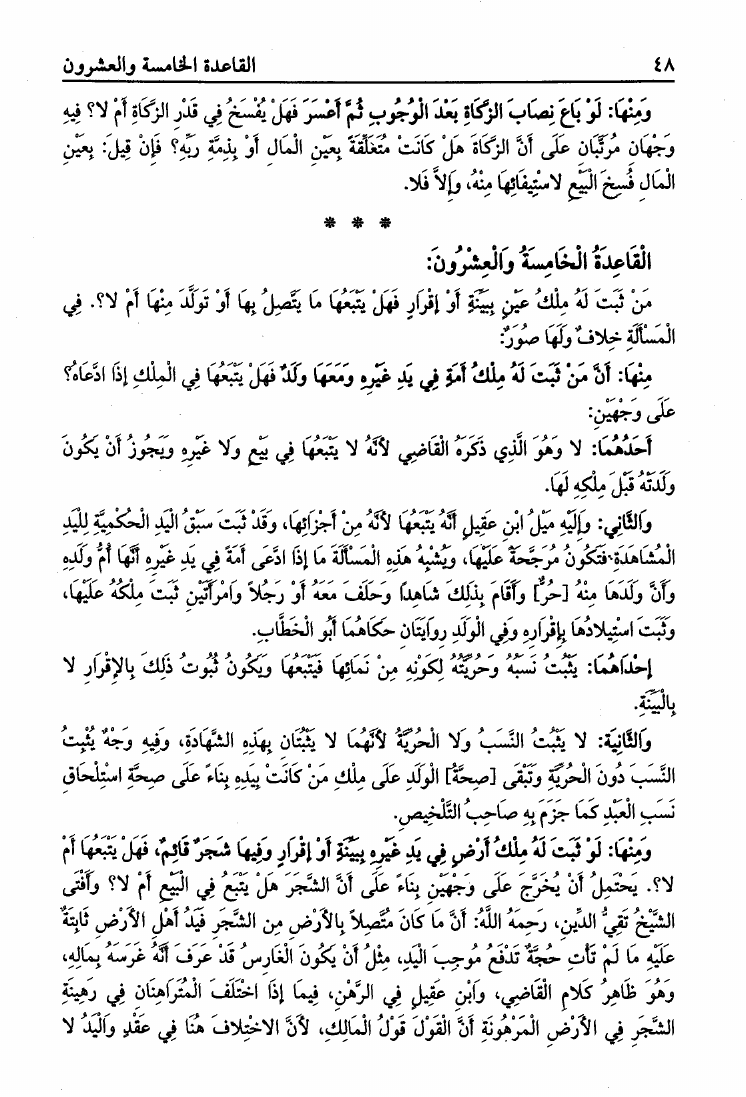 ٤٨ القاعدة الخامسة والعشرون
وَمِنْهَا: لَوْ بَاعَ نِصَابَ الزَّكَاةِ بَعْدَ الْوُجُوبِ ثُمَّ أَعْسَرَ فَهَلْ يُفْسَخُ فِي قَدْرِ الزَّكَاةِ أَمْ لَا؟ فِيهِ
وَجْهَانِ مُرَتَّبَانِ عَلَى أَنَّ الزَّكَاةَ هَلْ كَانَتْ مُتَعَلِّقَةً بِعَيْنِ الْمَالِ أَوْ بِذِمَّةِ رَبِّهِ؟ فَإِنْ قِيلَ: بِعَيْنِ
الْمَالِ فُسِخَ الْبَيْعُ لاسْتِيفَائِهَا مِنْهُ، وَإِلاَّ فَلا.
* * *
الْقَاعِدَةُ الْخَامِسَةُ وَالْعِشْرُونَ:
مَنْ ثَبَتَ لَهُ مِلْكُ عَيْنٍ بِبَيِّنَةٍ أَوْ إِقْرَارٍ فَهَلْ يَتْبَعُهَا مَا يَتَّصِلُ بِهَا أَوْ تَوَلَّدَ مِنْهَا أَمْ لَا؟. فِي
الْمَسْأَلَةِ خِلافٌ وَلَهَا صُوَرٌ:
مِنْهَا: أَنَّ مَنْ ثَبَتَ لَهُ مِلْكُ أَمَةٍ فِي يَدِ غَيْرِهِ وَمَعَهَا وَلَدٌ فَهَلْ يَتْبَعُهَا فِي الْمِلْكِ إِذَا ادَّعَاهُ؟
عَلَى وَجْهَيْنِ:
أَحَدُهُمَا: لا وَهُوَ الَّذِي ذَكَرَهُ الْقَاضِي لأَنَّهُ لا يَتْبَعُهَا فِي بَيْعٍ وَلا غَيْرِهِ وَيَجُوزُ أَنْ يَكُونَ
وَلَدَتْهُ قَبْلَ مِلْكِهِ لَهَا.
وَالثَّانِي: وَإِلَيْهِ مَيْلُ ابْنِ عَقِيلٍ أَنَّهُ يَتْبَعُهَا لأَنَّهُ مِنْ أَجْزَائِهَا، وَقَدْ ثَبَتَ سَبْقُ الْيَدِ الْحُكْمِيَّةِ لِلْيَدِ
الْمُشَاهَدَةِ فَتَكُونُ مُرَجَّحَةً عَلَيْهَا، وَيُشْبِهُ هَذِهِ الْمَسْأَلَةَ مَا إِذَا ادَّعَى أَمَةً فِي يَدِ غَيْرِهِ أَنَّهَا أُمُّ وَلَدِهِ
وَأَنَّ وَلَدَهَا مِنْهُ [حُرٌّ] وَأَقَامَ بِذَلِكَ شَاهِدًا وَحَلَفَ مَعَهُ أَوْ رَجُلاً وَامْرَأَتَيْنِ ثَبَتَ مِلْكُهُ عَلَيْهَا،
وَثَبَتَ اسْتِيلادُهَا بِإِقْرَارِهِ وَفِي الْوَلَدِ رِوَايَتَانِ حَكَاهُمَا أَبُو الْخَطَّابِ.
إِحْدَاهُمَا: يَثْبُتُ نَسَبُهُ وَحُرِّيَّتُهُ لِكَوْنِهِ مِنْ نَمَائِهَا فَيَتْبَعُهَا وَيَكُونُ ثُبُوتُ ذَلِكَ بِالإِقْرَارِ لا
بِالْبَيِّنَةِ.
وَالثَّانِيَةُ: لا يَثْبُتُ النَّسَبُ وَلا الْحُرِّيَّةُ لأَنَّهُمَا لا يَثْبُتَانِ بِهَذِهِ الشَّهَادَةِ، وَفِيهِ وَجْهٌ يُثْبِتُ
النَّسَبَ دُونَ الْحُرِّيَّةِ وَتَبْقَى [صِحَّةُ] الْوَلَدِ عَلَى مِلْكِ مَنْ كَانَتْ بِيَدِهِ بِنَاءً عَلَى صِحَّةِ اسْتِلْحَاقِ
نَسَبِ الْعَبْدِ كَمَا جَزَمَ بِهِ صَاحِبُ التَّلْخِيصِ.
وَمِنْهَا: لَوْ ثَبَتَ لَهُ مِلْكُ أَرْضٍ فِي يَدِ غَيْرِهِ بِبَيِّنَةٍ أَوْ إِقْرَارٍ وَفِيهَا شَجَرٌ قَائِمٌ، فَهَلْ يَتْبَعُهَا أَمْ
لا؟. يَحْتَمِلُ أَنْ يُخَرَّجَ عَلَى وَجْهَيْنِ بِنَاءً عَلَى أَنَّ الشَّجَرَ هَلْ يَتْبَعُ فِي الْبَيْعِ أَمْ لا؟ وَأَفْتَى
الشَّيْخُ تَقِيُّ الدِّينِ، رَحِمَهُ اللَّهُ: أَنَّ مَا كَانَ مُتَّصِلاً بِالأَرْضِ مِنِ الشَّجَرِ فَيَدُ أَهْلِ الأَرْضِ ثَابِتَةٌ
عَلَيْهِ مَا لَمْ تَأْتِ حُجَّةٌ تَدْفَعُ مُوجِبَ الْيَدِ، مِثْلُ أَنْ يَكُونَ الْغَارِسُ قَدْ عَرَفَ أَنَّهُ غَرَسَهُ بِمَالِهِ،
وَهُوَ ظَاهِرُ كَلامِ الْقَاضِي، وَابْنِ عَقِيلٍ فِي الرَّهْنِ، فِيمَا إِذَا اخْتَلَفَ الْمُتَرَاهِنَانِ فِي رَهِينَةِ
الشَّجَرِ فِي الأَرْضِ الْمَرْهُونَةِ أَنَّ الْقَوْلَ قَوْلُ الْمَالِكِ، لأَنَّ الاخْتِلافَ هُنَا فِي عَقْدٍ وَالْيَدُ لا